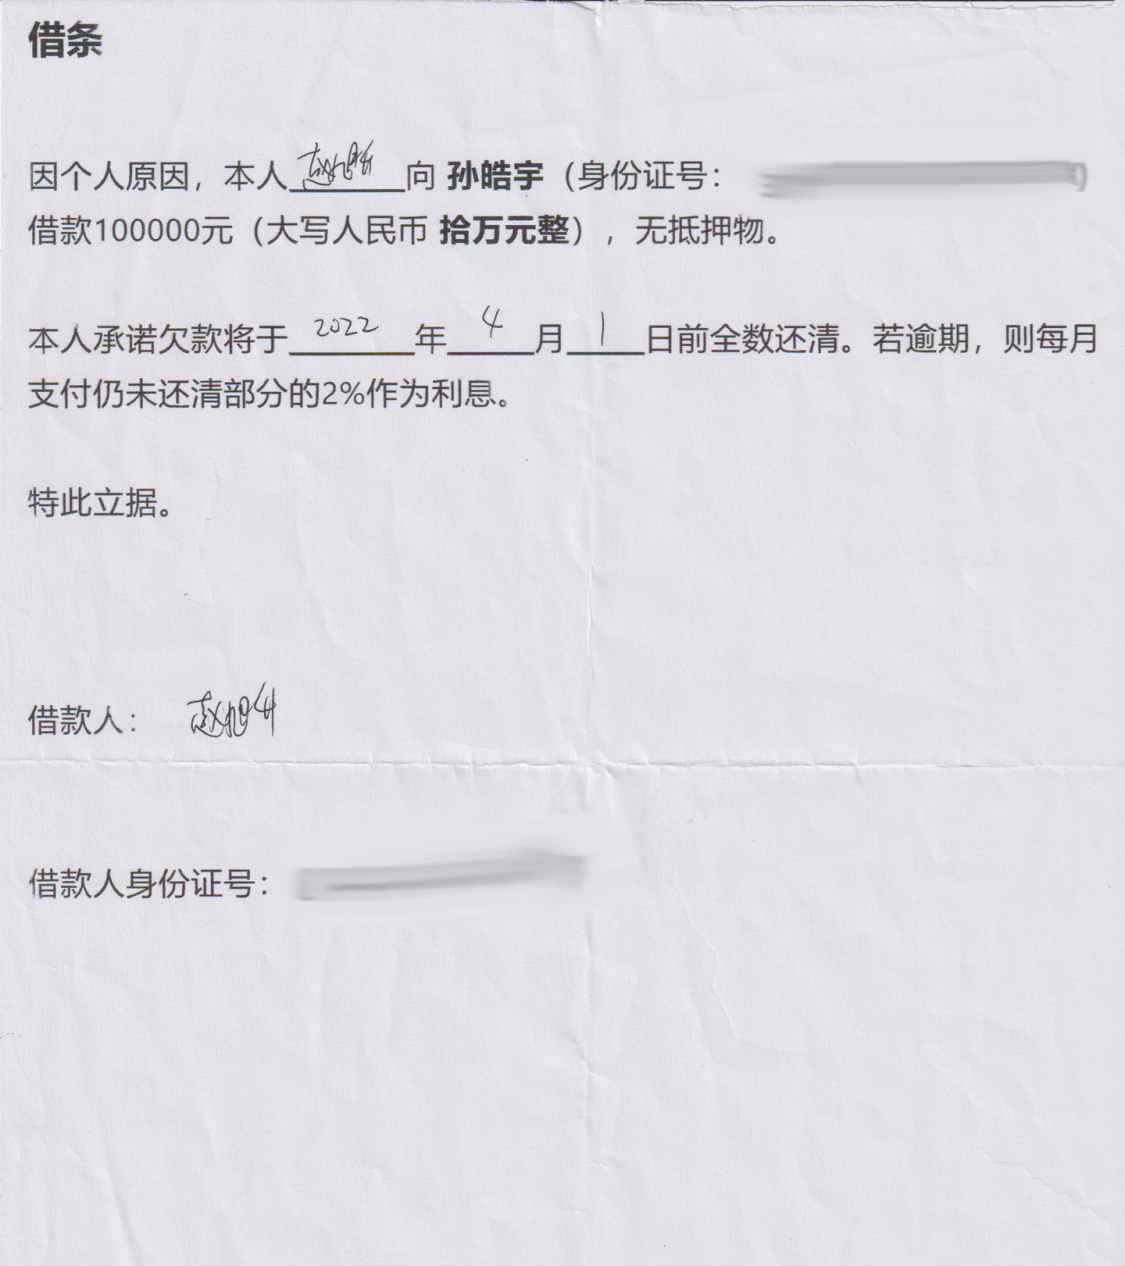 借条
因个人原因，本人赵旭升向 孙皓宇（身份证号：
借款100000元（大写人民币 拾万元整），无抵押物。
本人承诺欠款将于2022年4月1日前全数还清。若逾期，则每月
支付仍未还清部分的2%作为利息。
特此立据。
借款人： 赵旭升
借款人身份证号：